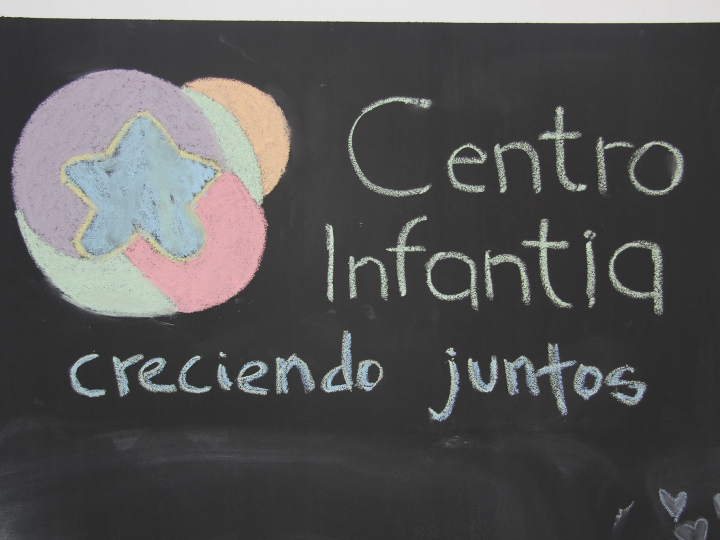 Centro
Infantia
creciendo juntos